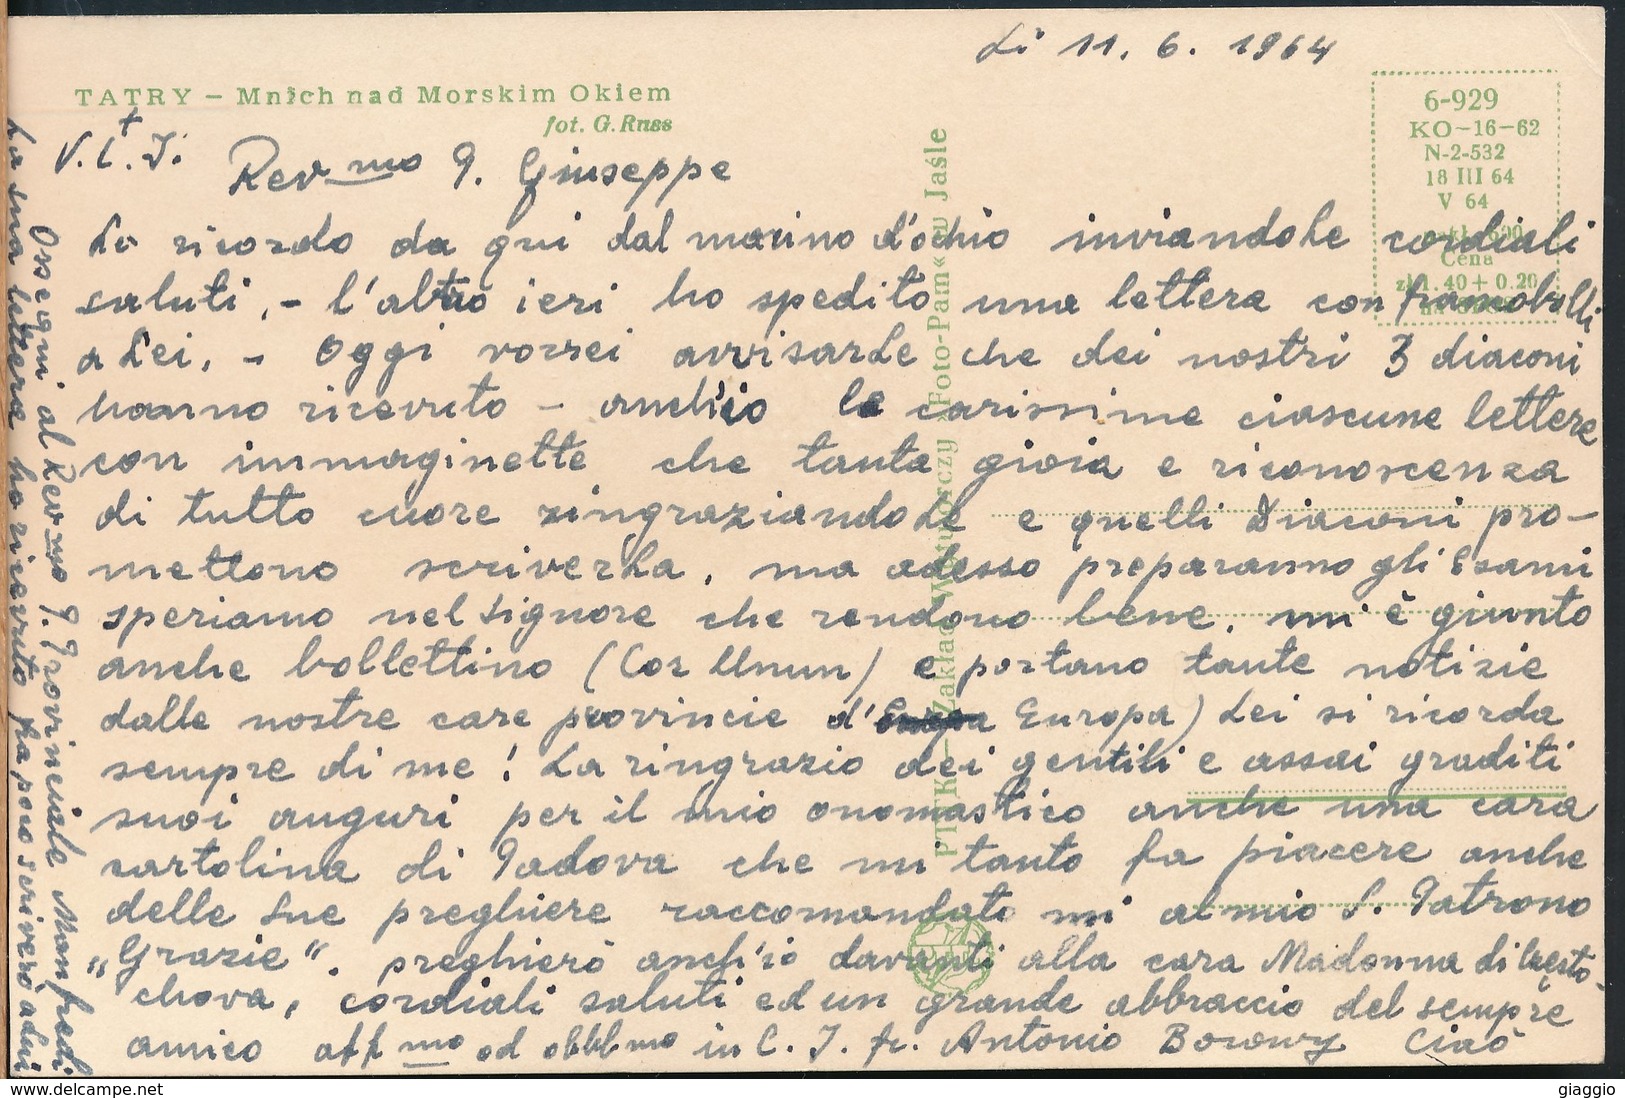 Li 11. 6. 1964
TATRY – Mnich nad Morskim Okiem
fot. G. Russ
6-929
KO-16-62
N-2-532
18 III 64
V 64
Cena
zł 1.40 + 0.20
PTTK – Zakład Wytwórczy »Foto-Pam« w Jaśle
V. C. J.
Rev mo P. Giuseppe
Lo ricordo da qui dal marino d'ochio inviandoLe cordiali
saluti, - l'altro ieri ho spedito una lettera con francobolli
a Lei, - Oggi vorrei avvisarLe che dei nostri 3 diaconi
hanno ricevuto - anch'io le carissime ciascune lettere
con immaginette che tanta gioia e riconoscenza
di tutto cuore ringraziandoLe e quelli Diaconi pro-
mettono scriverLa, ma adesso preparanno gli Esami
speriamo nel Signore che rendono bene. mi è giunto
anche bollettino (Cor Unum) e portano tante notizie
dalle nostre care provincie d' Europa) Lei si ricorda
sempre di me! La ringrazio dei gentili e assai graditi
suoi auguri per il mio onomastico anche una cara
cartolina di Padova che mi tanto fa piacere anche
delle Sue preghiere raccomandato mi al mio S. Patrono
„Grazie". pregherò anch'io davanti alla cara Madonna di Często-
chova, cordiali saluti ed un grande abbraccio del sempre
amico aff mo ed obbl mo in C. J. fr. Antonio Borowy Ciaò
Ossequi al Rev mo P. Provinciale Manfredi
La sua lettera ho ricevuto fra poco scriverò